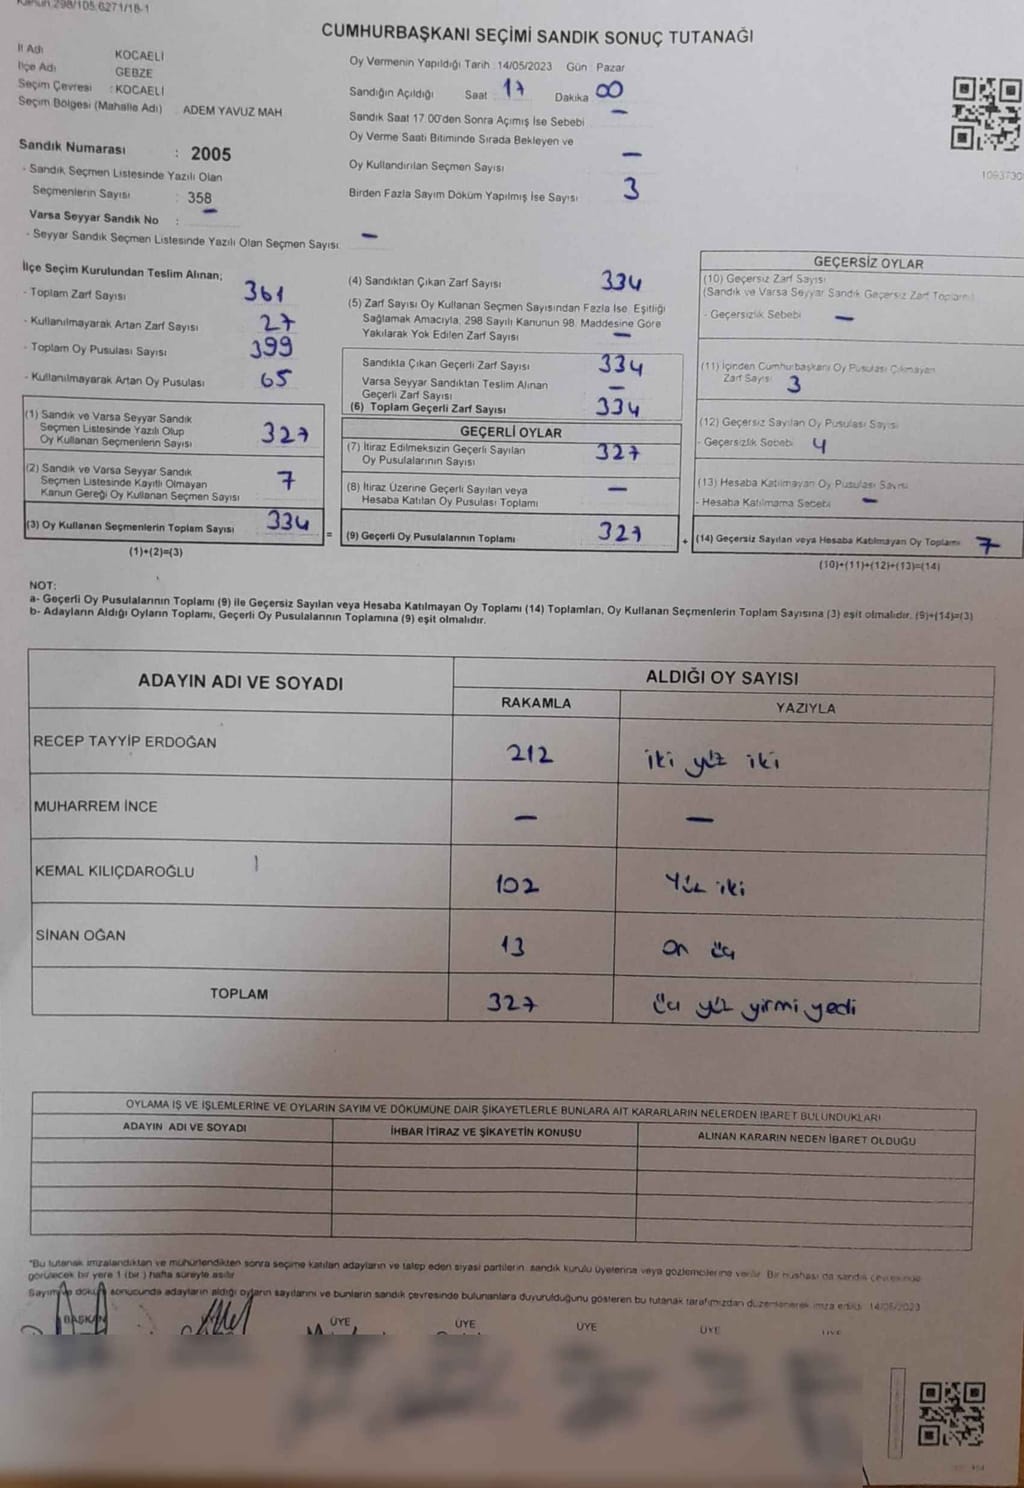 Kanun:298/105;6271/18-1
CUMHURBAŞKANI SEÇİMİ SANDIK SONUÇ TUTANAĞI
İl Adı : KOCAELİ
İlçe Adı : GEBZE
Seçim Çevresi : KOCAELİ
Seçim Bölgesi (Mahalle Adı) : ADEM YAVUZ MAH
Sandık Numarası : 2005
- Sandık Seçmen Listesinde Yazılı Olan
Seçmenlerin Sayısı : 358
Varsa Seyyar Sandık No : —
- Seyyar Sandık Seçmen Listesinde Yazılı Olan Seçmen Sayısı : —
Oy Vermenin Yapıldığı Tarih :14/05/2023 Gün : Pazar
Sandığın Açıldığı Saat 17 Dakika 00
Sandık Saat 17.00'den Sonra Açımış İse Sebebi —
Oy Verme Saati Bitiminde Sırada Bekleyen ve
Oy Kullandırılan Seçmen Sayısı —
Birden Fazla Sayım Döküm Yapılmış İse Sayısı 3
1093730
İlçe Seçim Kurulundan Teslim Alınan;
- Toplam Zarf Sayısı 361
- Kullanılmayarak Artan Zarf Sayısı 27
- Toplam Oy Pusulası Sayısı 399
- Kullanılmayarak Artan Oy Pusulası 65
(1) Sandık ve Varsa Seyyar Sandık
Seçmen Listesinde Yazılı Olup
Oy Kullanan Seçmenlerin Sayısı 327
(2) Sandık ve Varsa Seyyar Sandık
Seçmen Listesinde Kayıtlı Olmayan
Kanun Gereği Oy Kullanan Seçmen Sayısı 7
(3) Oy Kullanan Seçmenlerin Toplam Sayısı 334 =
(1)+(2)=(3)
(4) Sandıktan Çıkan Zarf Sayısı 334
(5) Zarf Sayısı Oy Kullanan Seçmen Sayısından Fazla İse, Eşitliği
Sağlamak Amacıyla, 298 Sayılı Kanunun 98. Maddesine Göre
Yakılarak Yok Edilen Zarf Sayısı —
Sandıkta Çıkan Geçerli Zarf Sayısı 334
Varsa Seyyar Sandıktan Teslim Alınan
Geçerli Zarf Sayısı —
(6) Toplam Geçerli Zarf Sayısı 334
GEÇERLİ OYLAR
(7) İtiraz Edilmeksizin Geçerli Sayılan
Oy Pusulalarının Sayısı 327
(8) İtiraz Üzerine Geçerli Sayılan veya
Hesaba Katılan Oy Pusulası Toplamı —
(9) Geçerli Oy Pusulalarının Toplamı 327 +
GEÇERSİZ OYLAR
(10) Geçersiz Zarf Sayısı
(Sandık ve Varsa Seyyar Sandık Geçersiz Zarf Toplamı)
- Geçersizlik Sebebi —
(11) İçinden Cumhurbaşkanı Oy Pusulası Çıkmayan
Zarf Sayısı 3
(12) Geçersiz Sayılan Oy Pusulası Sayısı
- Geçersizlik Sebebi 4
(13) Hesaba Katılmayan Oy Pusulası Sayısı
- Hesaba Katılmama Sebebi —
(14) Geçersiz Sayılan veya Hesaba Katılmayan Oy Toplamı 7
(10)+(11)+(12)+(13)=(14)
NOT:
a- Geçerli Oy Pusulalarının Toplamı (9) ile Geçersiz Sayılan veya Hesaba Katılmayan Oy Toplamı (14) Toplamları, Oy Kullanan Seçmenlerin Toplam Sayısına (3) eşit olmalıdır. (9)+(14)=(3)
b- Adayların Aldığı Oyların Toplamı, Geçerli Oy Pusulalarının Toplamına (9) eşit olmalıdır.
ADAYIN ADI VE SOYADI ALDIĞI OY SAYISI
RAKAMLA YAZIYLA
RECEP TAYYİP ERDOĞAN 212 iki yüz iki
MUHARREM İNCE — —
KEMAL KILIÇDAROĞLU 102 Yüz iki
SİNAN OĞAN 13 on üç
TOPLAM 327 üç yüz yirmi yedi
OYLAMA İŞ VE İŞLEMLERİNE VE OYLARIN SAYIM VE DÖKÜMÜNE DAİR ŞİKAYETLERLE BUNLARA AİT KARARLARIN NELERDEN İBARET BULUNDUKLARI
ADAYIN ADI VE SOYADI İHBAR İTİRAZ VE ŞİKAYETİN KONUSU ALINAN KARARIN NEDEN İBARET OLDUĞU
*Bu tutanak imzalandıktan ve mühürlendikten sonra seçime katılan adayların ve talep eden siyasi partilerin, sandık kurulu üyelerine veya gözlemcilerine verilir. Bir nüshası da sandık çevresinde
görülecek bir yere 1 (bir ) hafta süreyle asılır.
Sayım ve döküm sonucunda adayların aldığı oyların sayılarını ve bunların sandık çevresinde bulunanlara duyurulduğunu gösteren bu tutanak tarafımızdan düzenlenerek imza edildi. 14/05/2023
BAŞKAN ÜYE ÜYE ÜYE ÜYE ÜYE